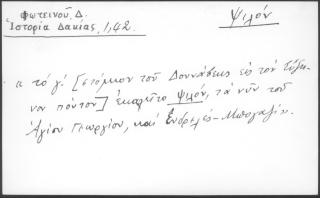 Φωτεινοῦ, Δ.
Ἱστορία Δακίας, 1,42.
Ψιλόν
"τό γ! [στόμιον τοῦ Δουνάβεως εἰς τόν Εὔξει-
νον πόντον] ἐκαλεῖτο ψιλόν, τά νῦν τοῦ
Ἁγίου Γεωργίου, καί Ἐνδρελές-Μπογαζίν.